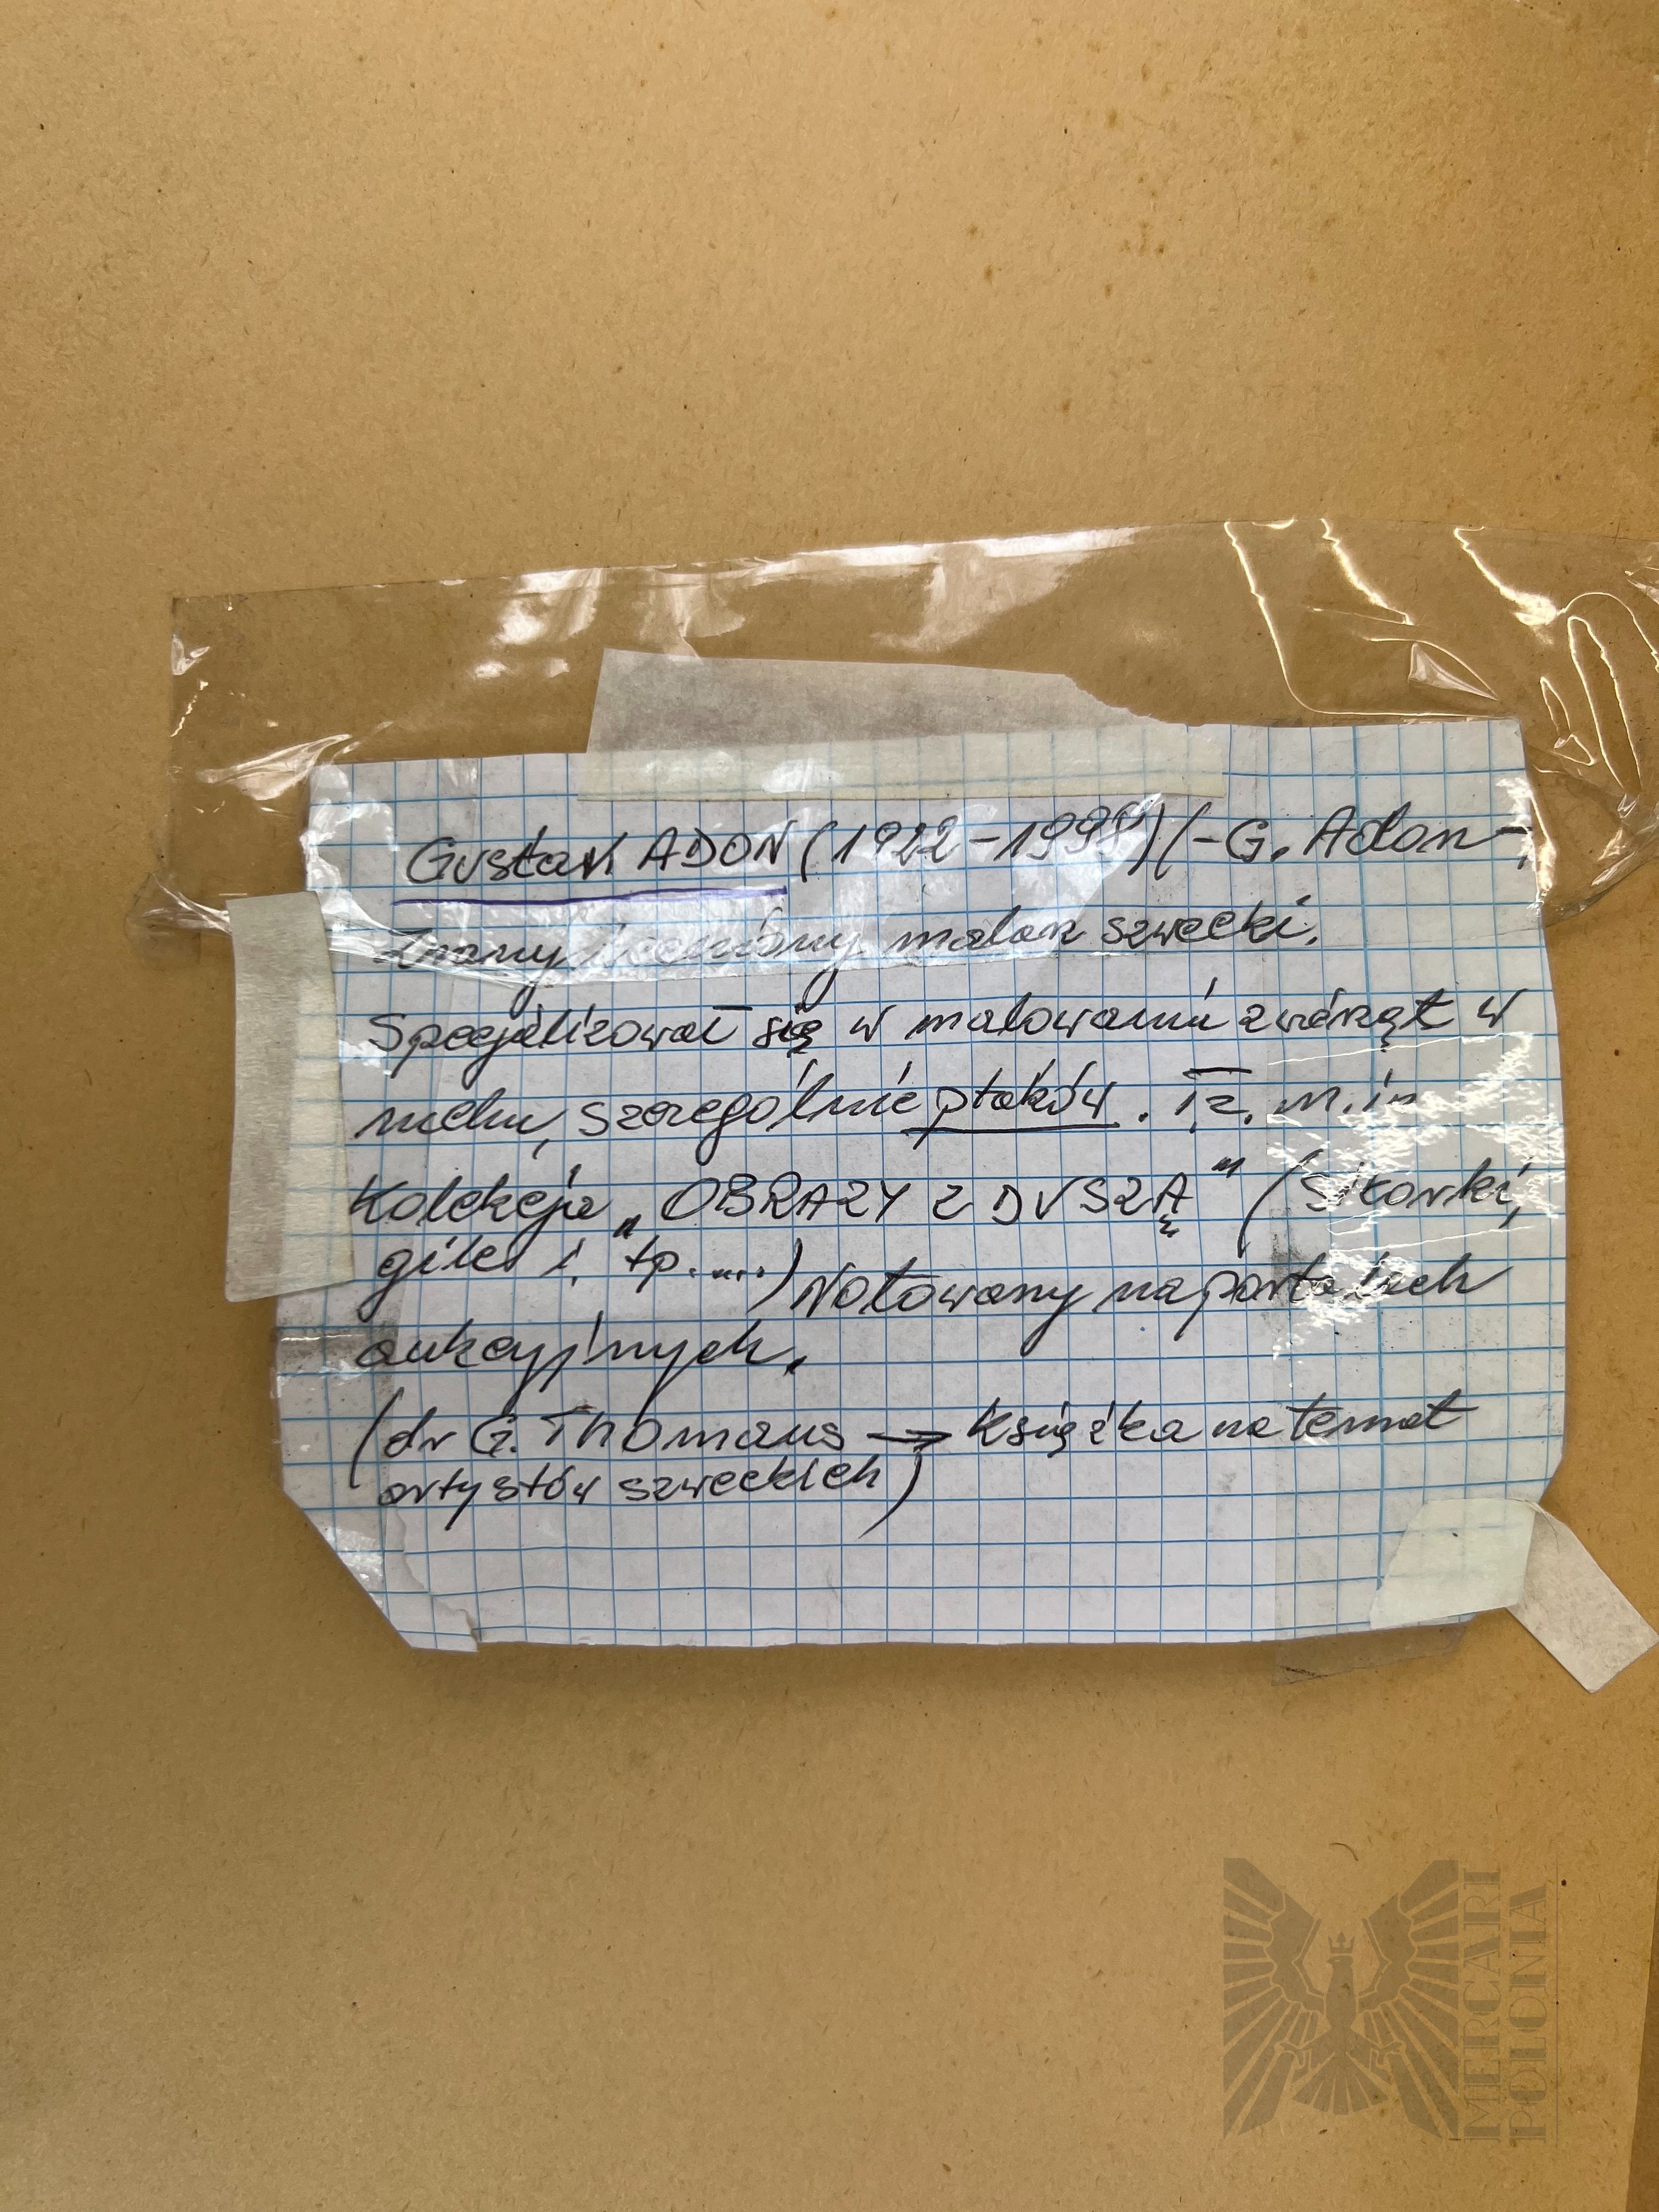 Gustav ADON (1922-1998) (-G. Adon-,
Znany i ceniony malarz szwecki.
Specjalizował się w malowaniu zwierząt w
ruchu, szczególnie ptaków. Tz. m.in
Kolekcja „OBRAZY Z DUSZĄ" (Sikorki,
gile i. tp.....) Notowany na portalach
aukcyjnych.
(dr G. Thomaus → Książka na temat
artystów szweckich)
MERCARI
POLONIA